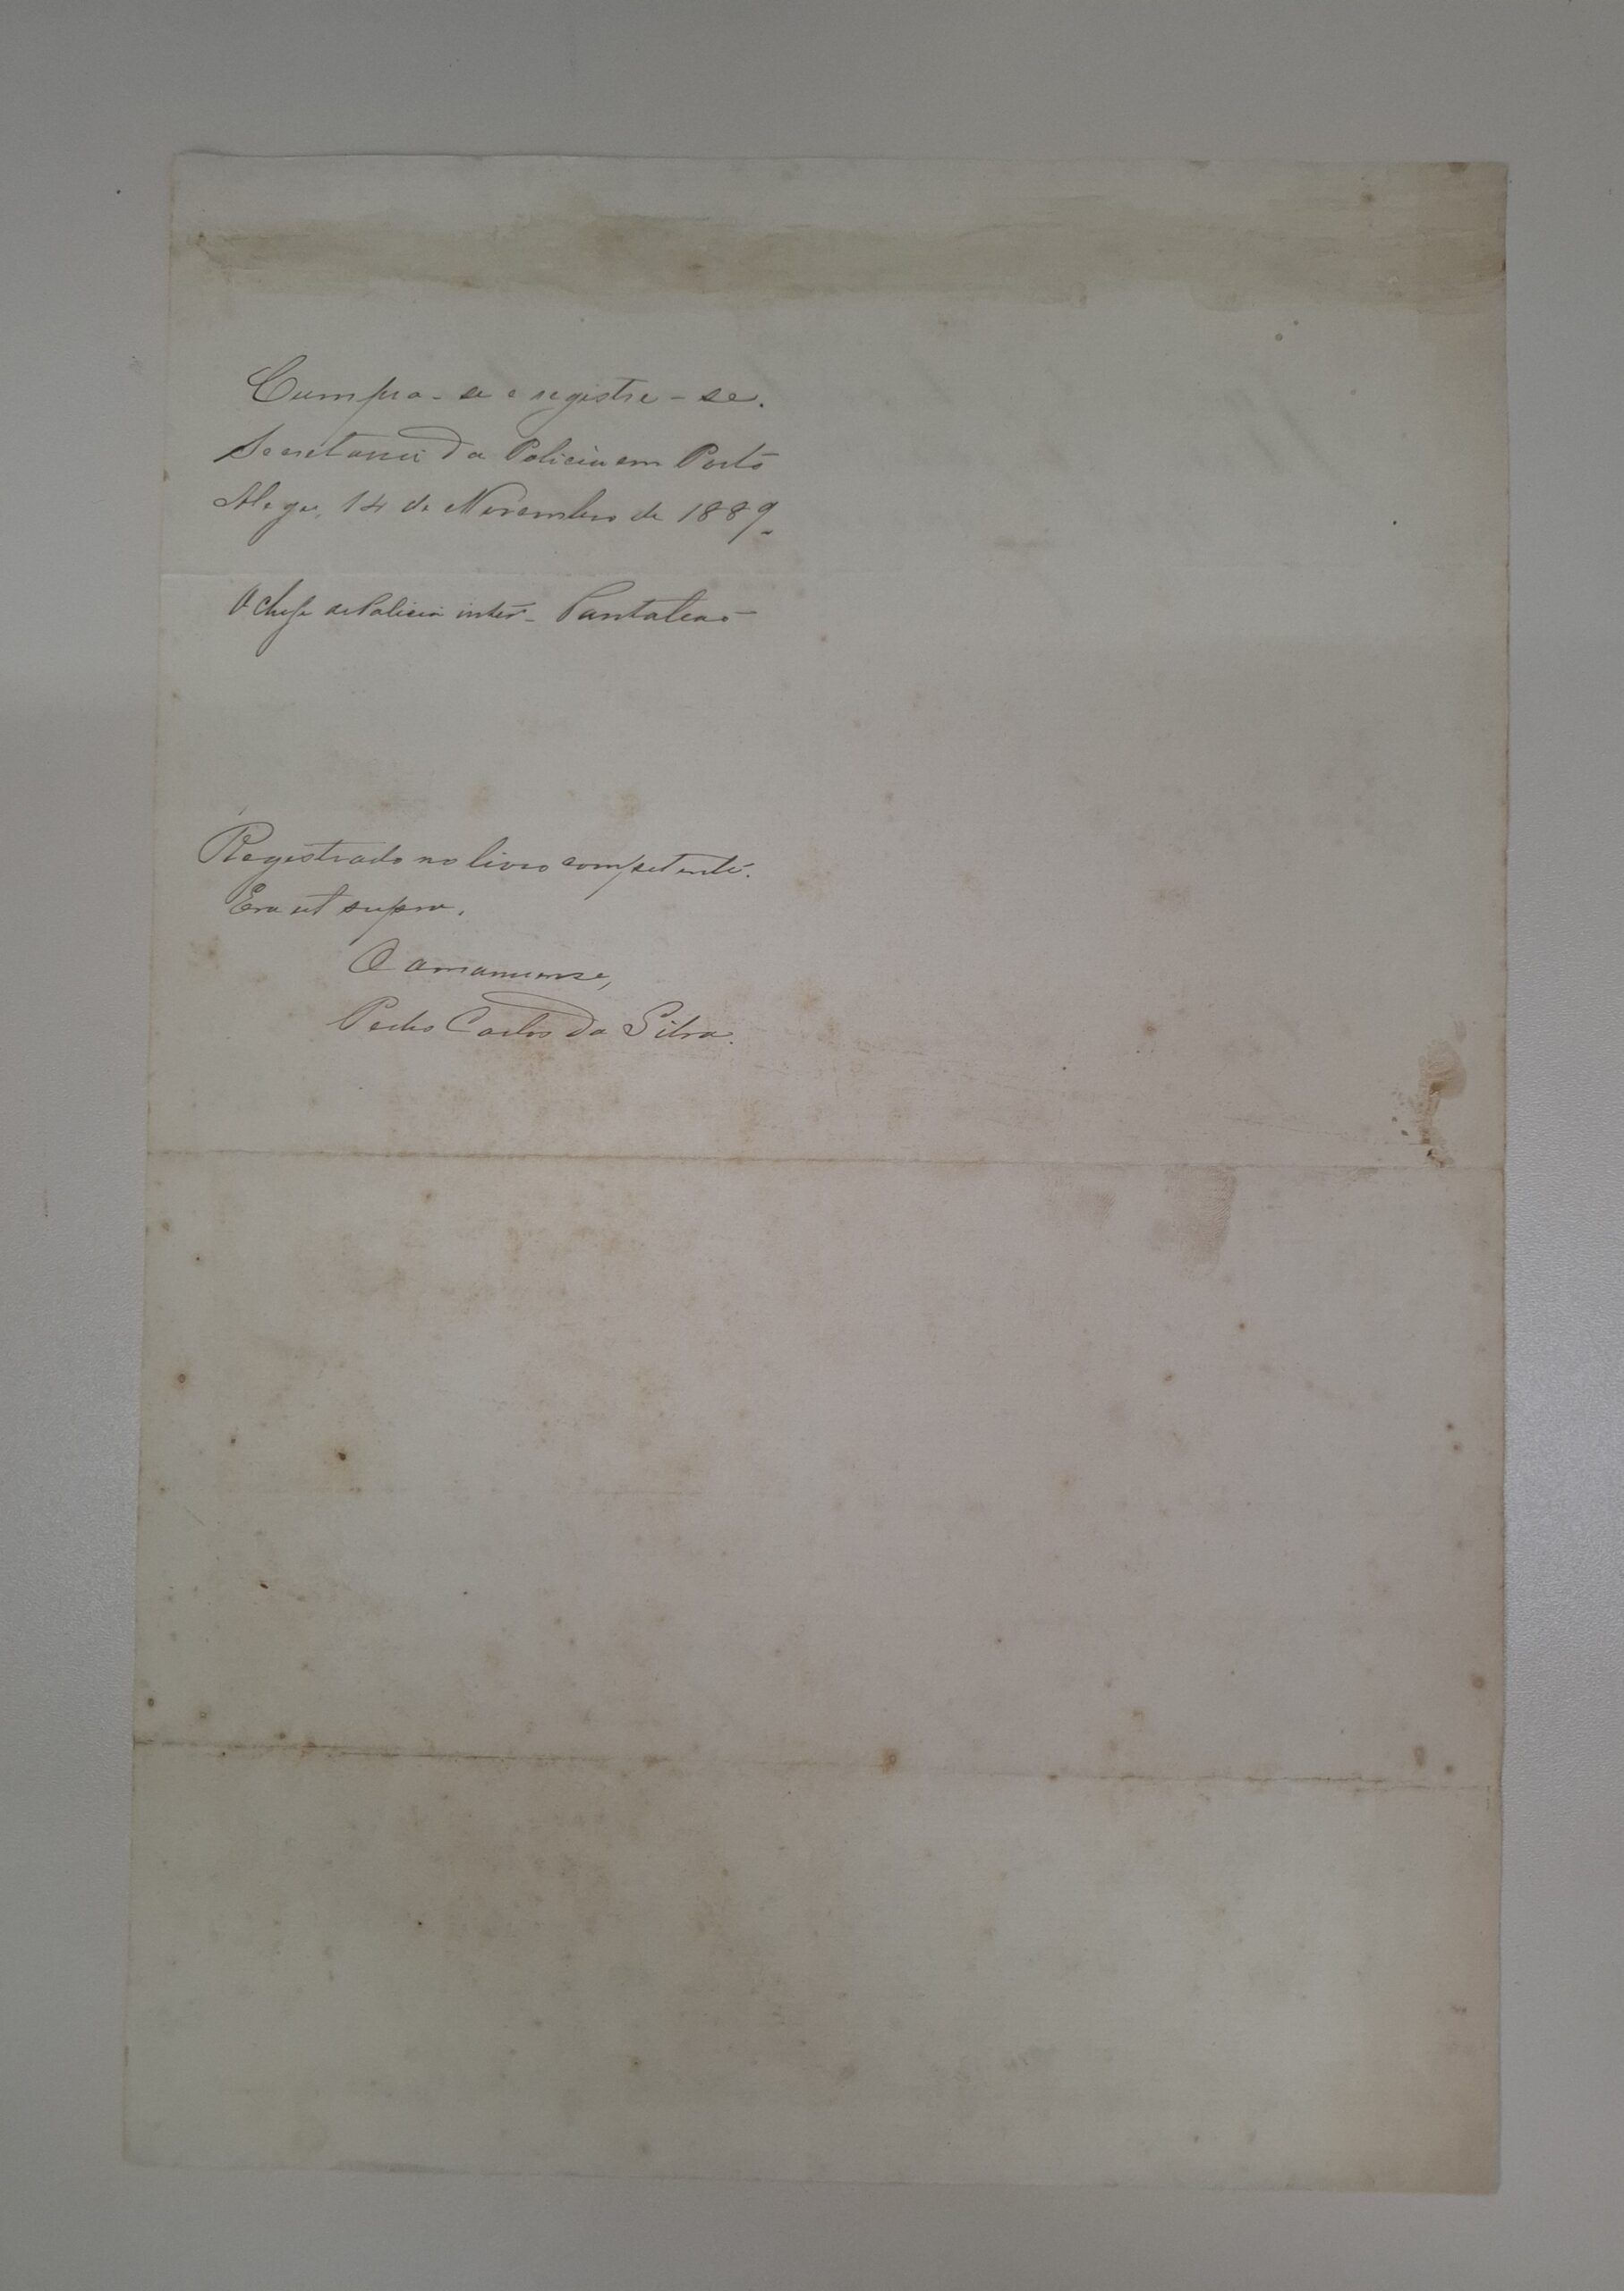 Cumpra-se e registre-se.
Secretaria da Policia em Porto
Alegre, 14 de Novembro de 1889.
O Chefe de Policia inter.º Pantaleaõ
Registrado no livro competente.
Era ut supra.
O amanuense,
Pedro Carlos da Silva.